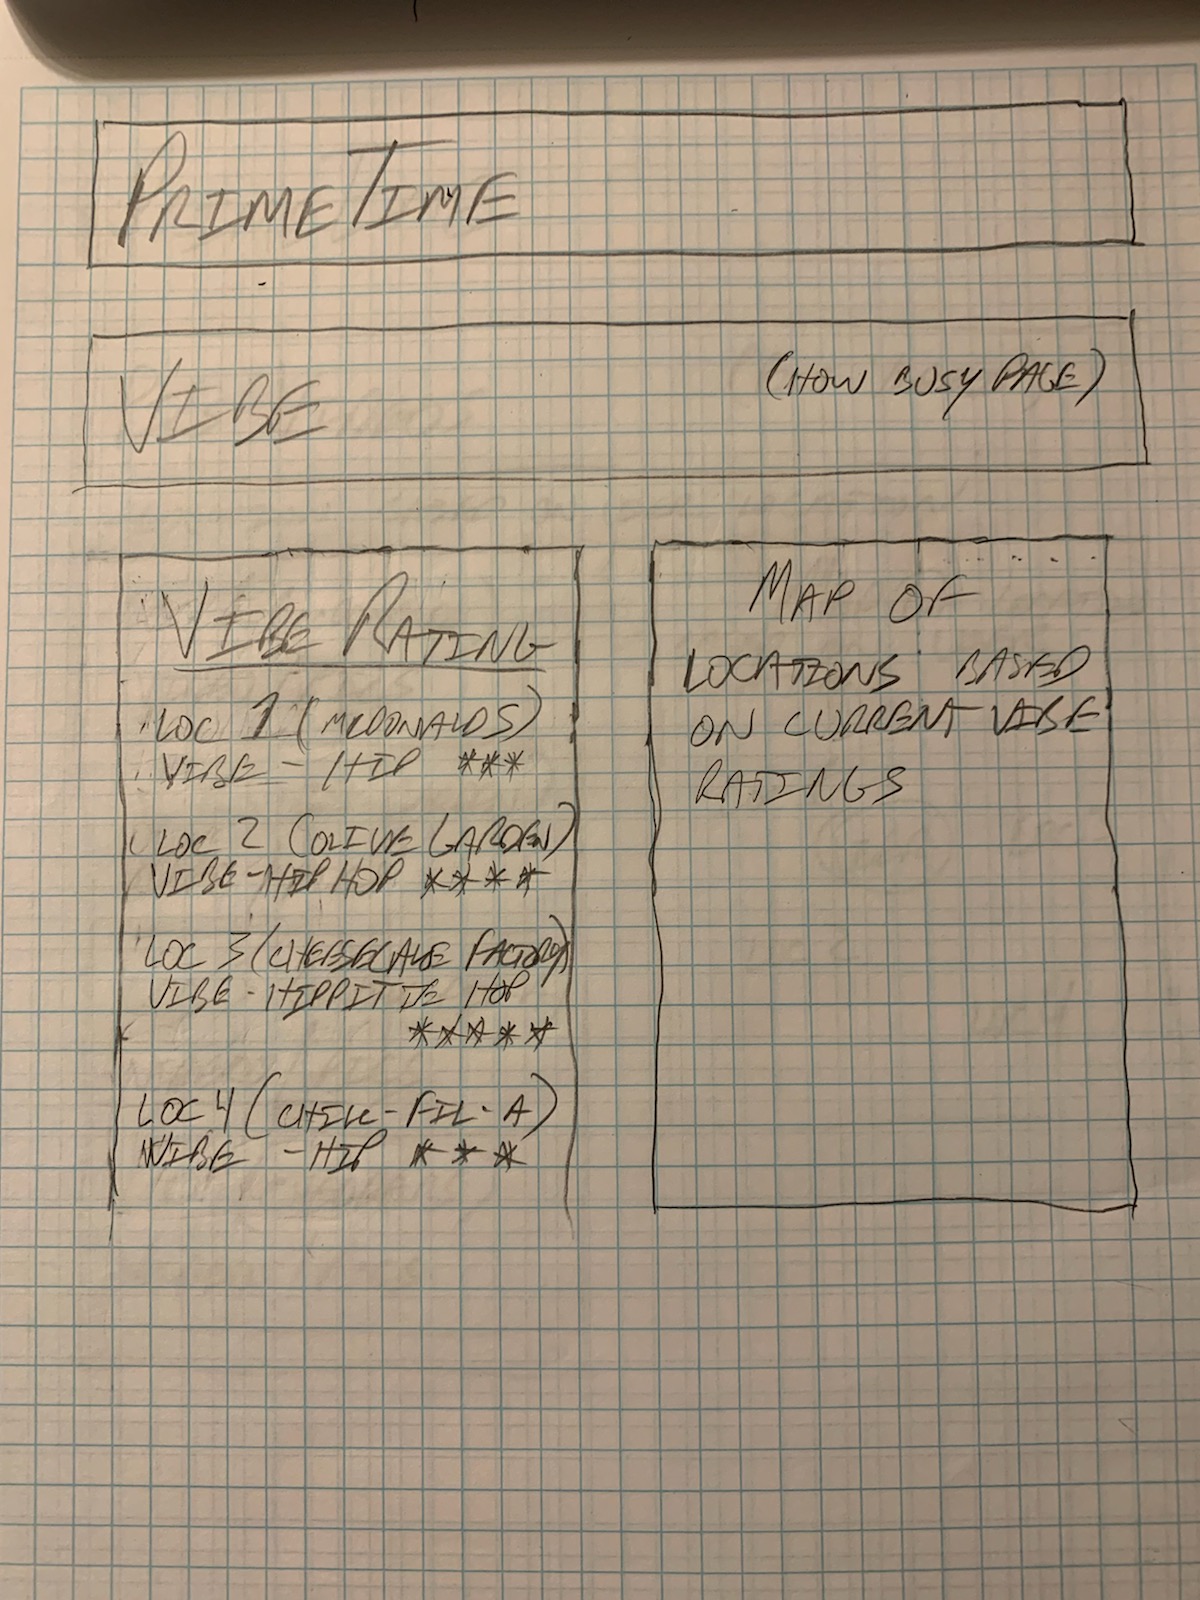 PRIMETIME
VIBE
(HOW BUSY PAGE)
VIBE RATING
LOC 1 (MCDONALDS)
VIBE - HIP ***
LOC 2 (OLIVE GARDEN)
VIBE - HIP HOP ****
LOC 3 (CHEESECAKE FACTORY)
VIBE - HIPPITIE HOP
*****
LOC 4 (CHIK-FIL-A)
VIBE - HIP ***
MAP OF
LOCATIONS BASED
ON CURRENT VIBE
RATINGS